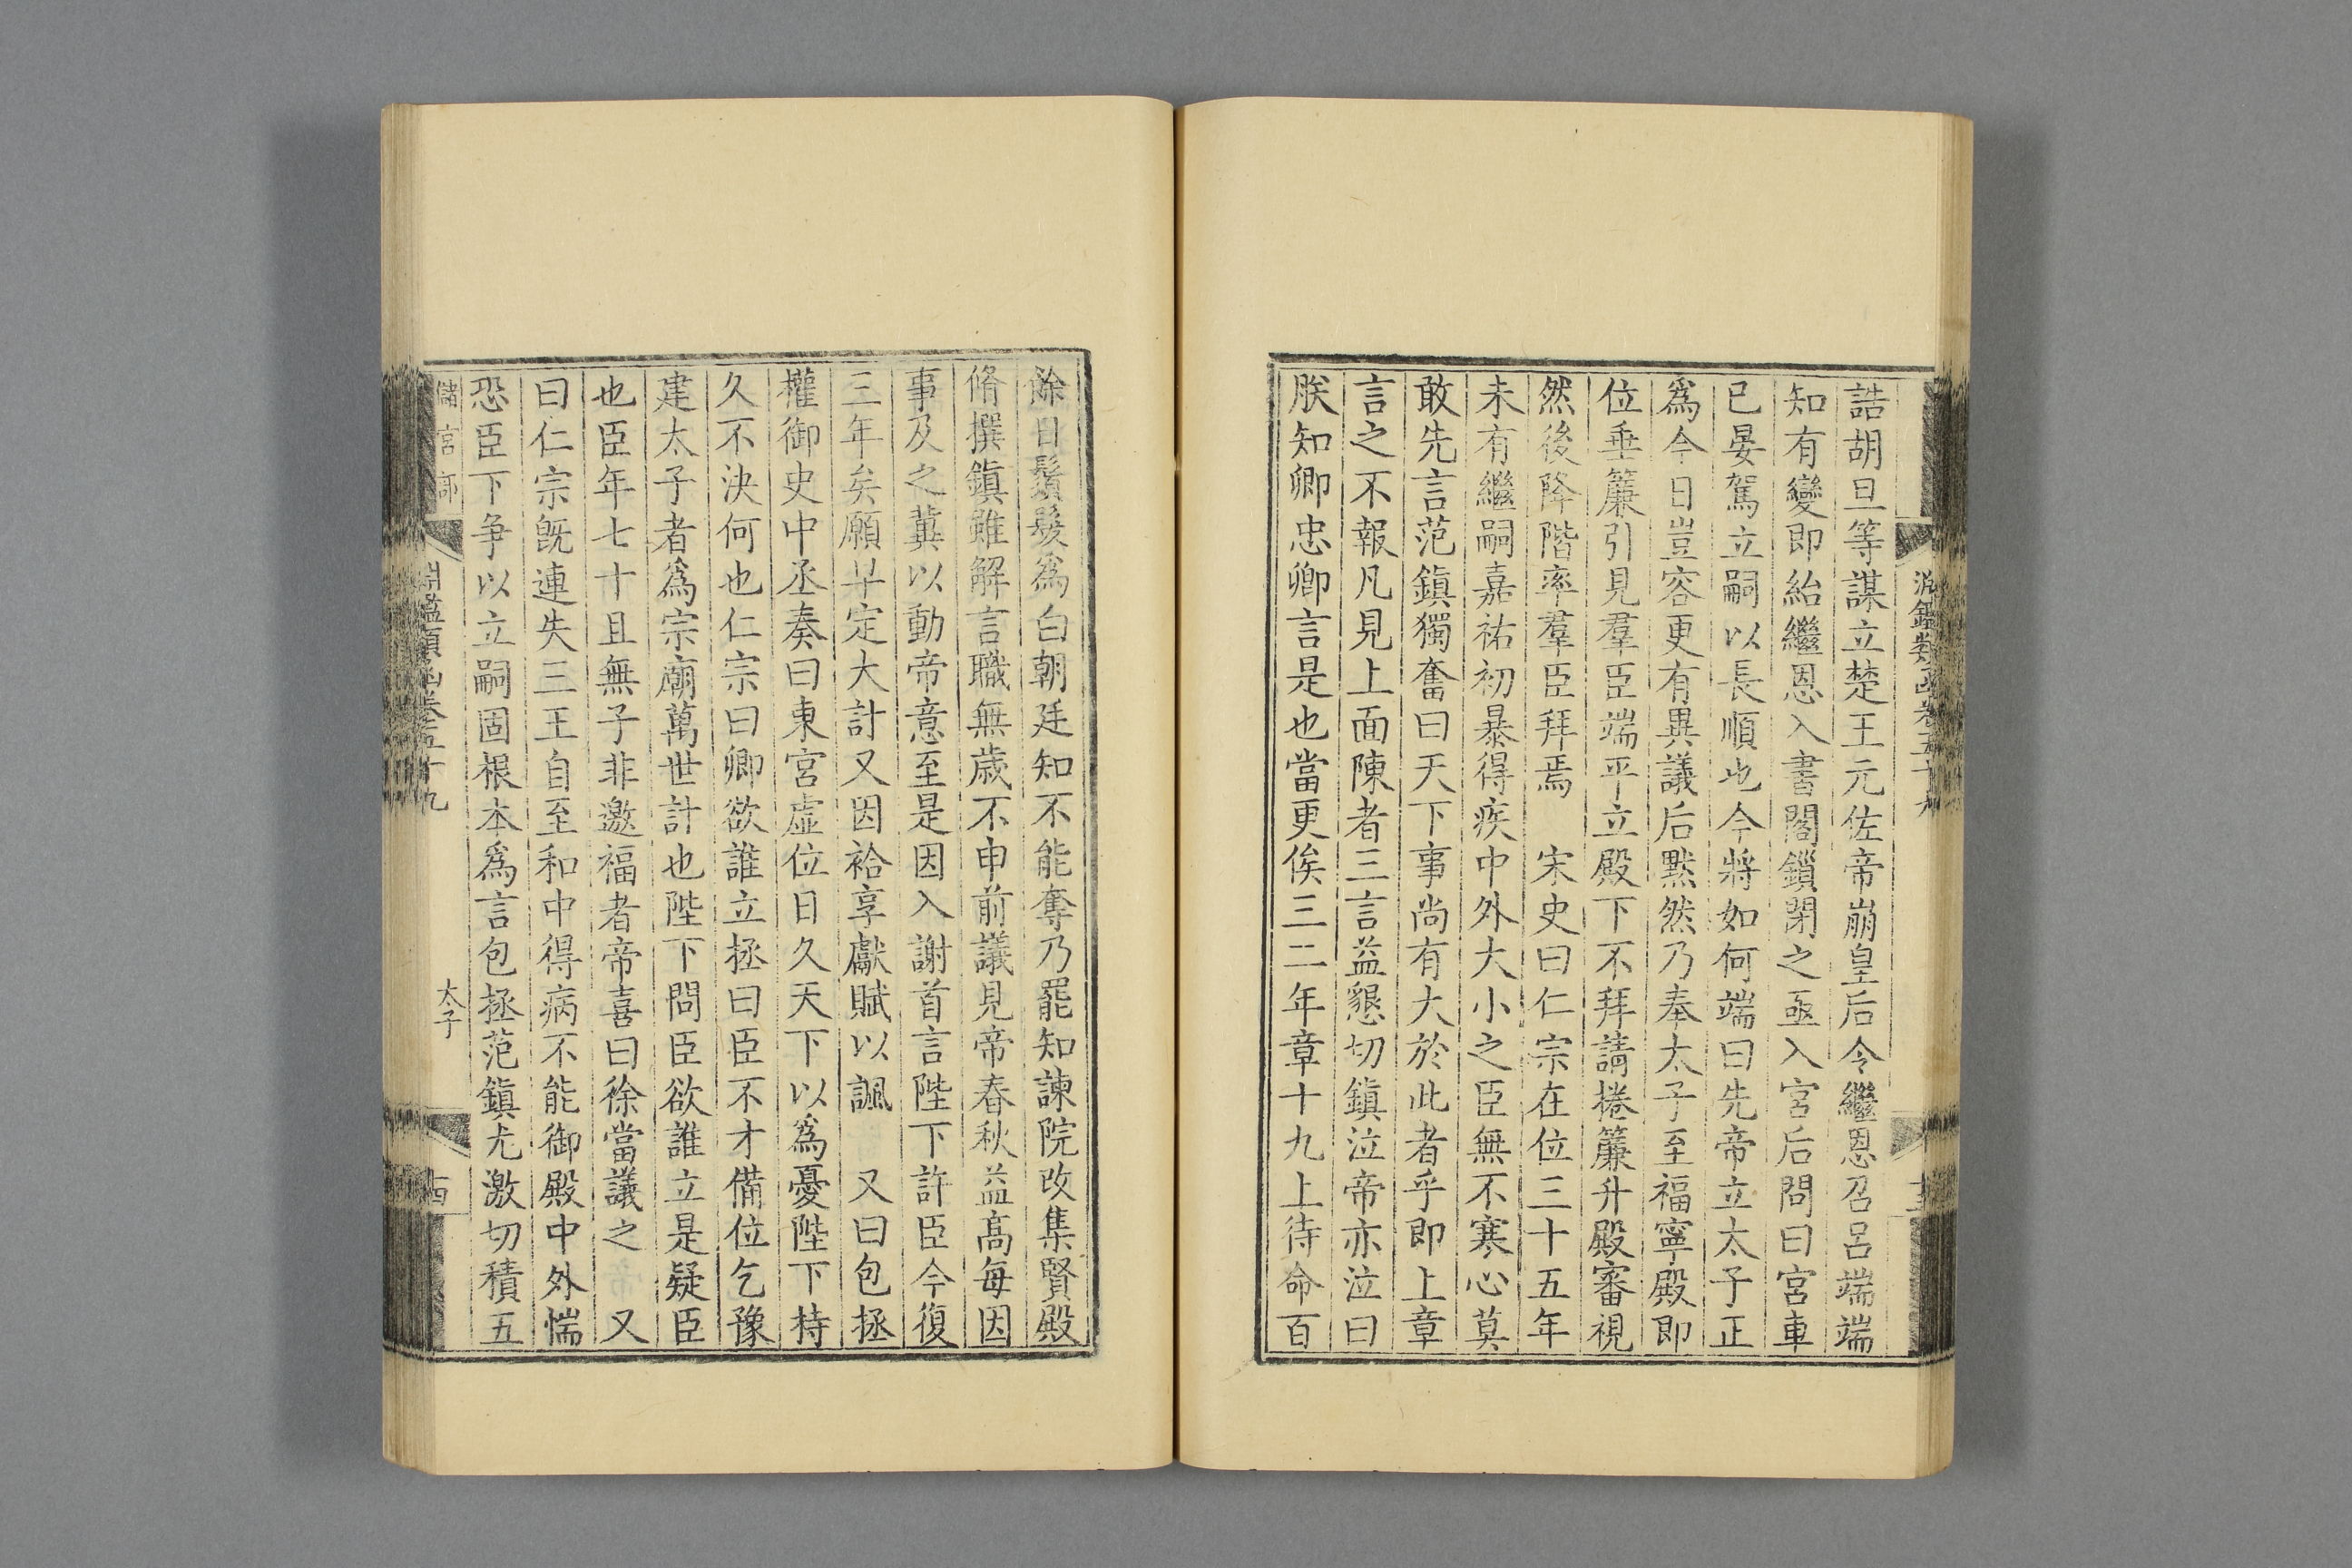 淵鑑類函卷五十九
誥胡旦等謀立楚王元佐帝崩皇后令繼恩召呂端端
知有變即紿繼恩入書閣鎖閉之亟入宮后問曰宮車
已晏駕立嗣以長順也今將如何端曰先帝立太子正
爲今日豈容更有異議后黙然乃奉太子至福寧殿即
位垂簾引見羣臣端平立殿下不拜請捲簾升殿審視
然後降階率羣臣拜焉　宋史曰仁宗在位三十五年
未有繼嗣嘉祐初暴得疾中外大小之臣無不寒心莫
敢先言范鎮獨奮曰天下事尚有大於此者乎即上章
言之不報凡見上面陳者三言益懇切鎮泣帝亦泣曰
朕知卿忠卿言是也當更俟三二年章十九上待命百
餘日鬚髮爲白朝廷知不能奪乃罷知諫院改集賢殿
脩撰鎮雖解言職無歲不申前議見帝春秋益高每因
事及之冀以動帝意至是因入謝首言陛下許臣今復
三年矣願早定大計又因祫享獻賦以諷　又曰包拯
權御史中丞奏曰東宮虛位日久天下以爲憂陛下持
久不決何也仁宗曰卿欲誰立拯曰臣不才備位乞豫
建太子者爲宗廟萬世計也陛下問臣欲誰立是疑臣
也臣年七十且無子非邀福者帝喜曰徐當議之　又
曰仁宗旣連失三王自至和中得病不能御殿中外惴
恐臣下争以立嗣固根本爲言包拯范鎮尤激切積五
儲宮部
淵鑑類函卷五十九
太子
十四